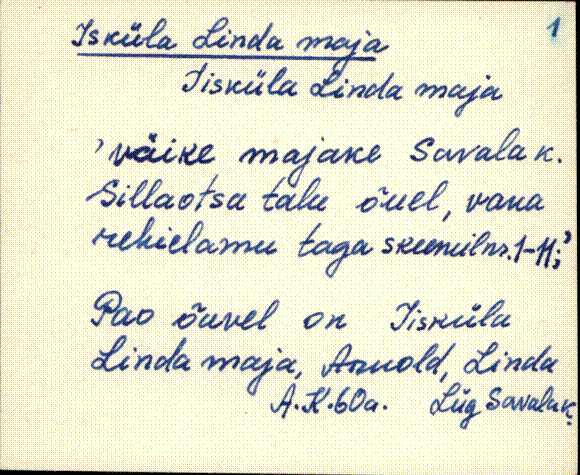 1
Isküla Linda maja
Iisküla Linda maja
'väike majake Savala k.
Sillaotsa talu õuel, vana
rehielamu taga skeemil nr. 1-11;'
Pao õuvel on Iisküla
Linda maja, Arnold, Linda
A.K.60a. Lüg Savala k.